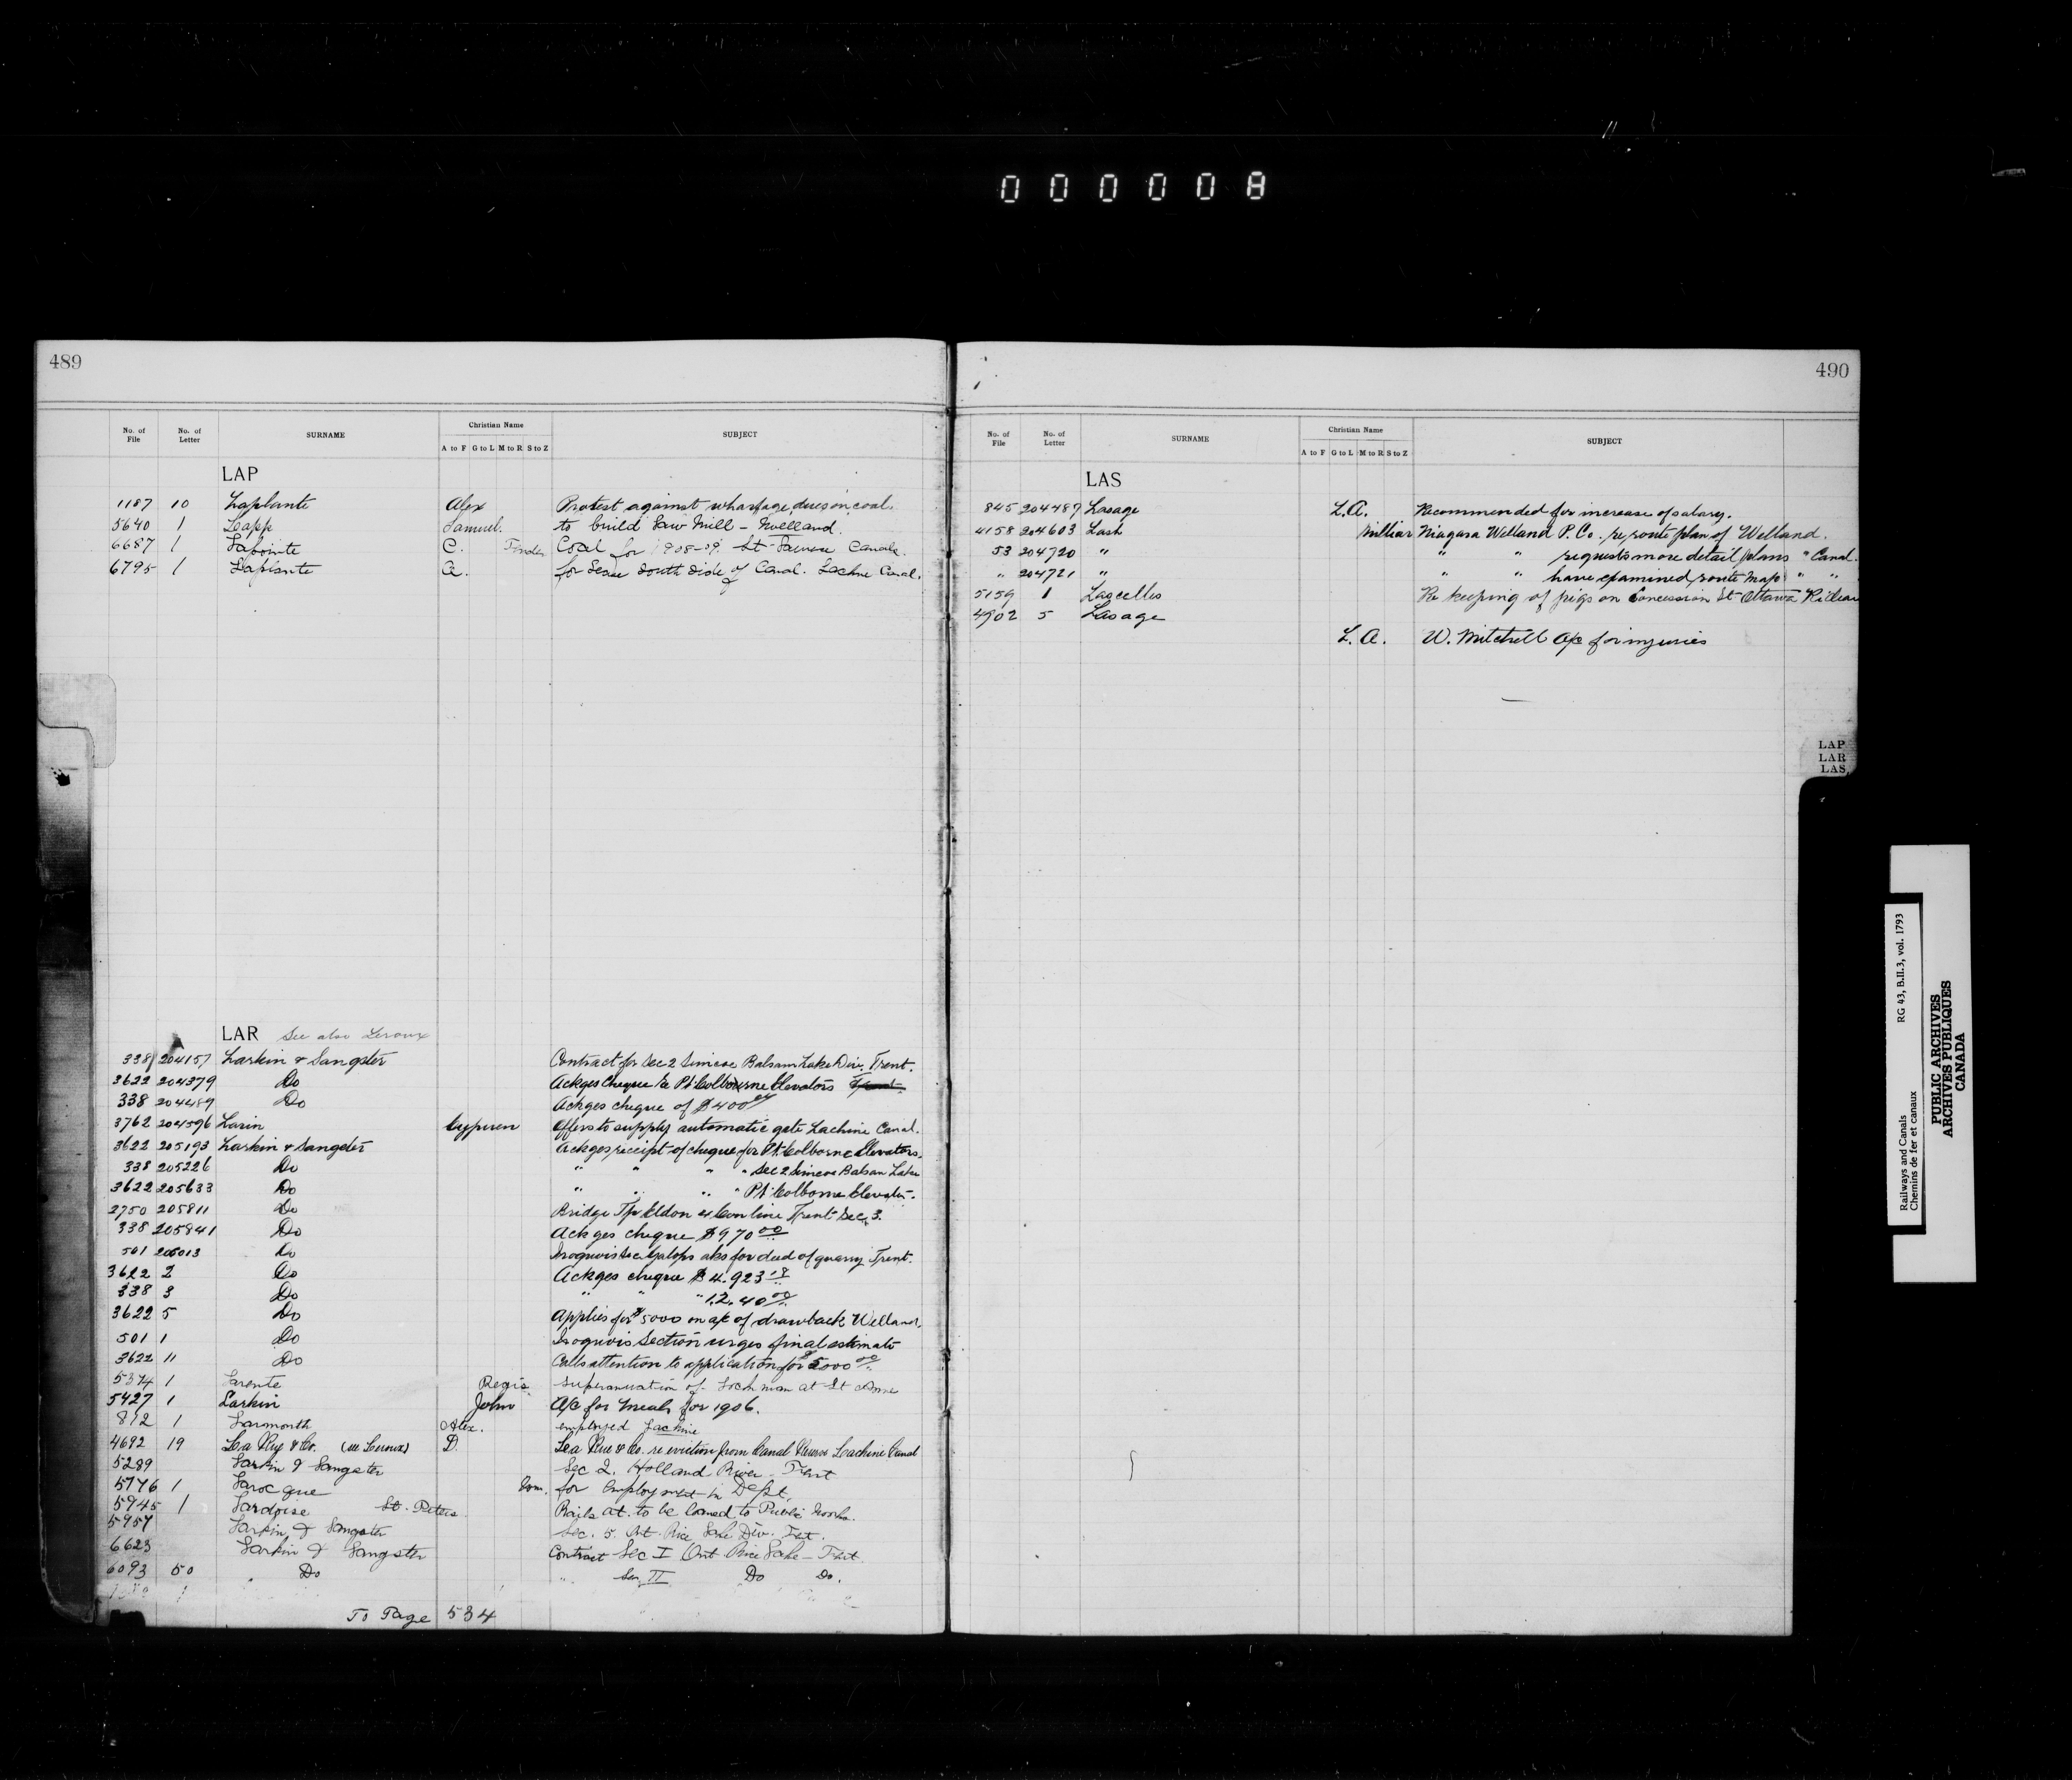 000008
489
No. of File No. of Letter SURNAME Christian Name SUBJECT
A to F G to L M to R S to Z
LAP
1187 10 Laplante Alex Protest against wharfage dues on coal.
5640 1 Lapp Samuel. to build Saw Mill - Welland.
6687 1 Lapointe C. Tender Coal for 1908-09. St-Lawrence Canals.
6795 1 Laplante A. for Lease South Side of Canal. Lachine Canal.
LAR See also Leroux
338 204157 Larkin & Sangster Contract for Sec 2 Simcoe Balsam Lake Div. Trent.
3622 204379 Do Ackges Cheque re Pt. Colbourne Elevators
338 204489 Do Ackges cheque of $400
3762 204596 Larin Cyprien Offers to supply automatic gate Lachine Canal.
3622 205193 Larkin & Sangster Ackges receipt of cheque for Pt. Colborne Elevators.
338 205226 Do " " " " Sec 2 Simcoe Balsam Lake
3622 205633 Do " " " " Pt. Colborne Elevator.
2750 205811 Do Bridge Tp Eldon & Con line Trent Sec. 3.
338 205841 Do Ackges cheque $970 00
501 206013 Do Iroquois Sec Galops aks for deed of quarry Trent.
3622 2 Do Ackges cheque $4.923 18
338 3 Do " " " 1,2,40 00
3622 5 Do Applies for $5000 on a/c of drawback Welland.
501 1 Do Iroquois Section urges final estimate
3622 11 Do Calls attention to application for $5000 00
5374 1 Larente Regis Superannuation of Lockman at St Anne
5427 1 Larkin John A/c for Meals for 1906.
812 1 Larmonth Alex. employed Lachine
4692 19 La Rue & Co. (see Leroux) D. La Rue & Co. re eviction from Canal Reserve Lachine Canal
5289 Larkin & Sangster Sec 2. Holland River - Trent
5776 1 Larocque for Employment in Dept.
5945 1 Lardoise St. Peters Rails at. to be loaned to Public Works.
5957 Larkin & Sangster Sec. 5. Ont-Rice Lake Div. Trent.
6623 Larkin & Sangster Contract Sec I Ont Rice Lake - Trent
6093 50 Do " Sec II Do Do.
To Page 534
490
No. of File No. of Letter SURNAME Christian Name SUBJECT
A to F G to L M to R S to Z
LAS
845 204487 Lasage L.A. Recommended for increase of salary.
4158 204603 Lash Miller Niagara Welland P. Co. re route plan of Welland.
53 204720 " " " requests more detail plans " Canal.
" 204721 " " " have examined route map " "
5159 1 Lascelles Re keeping of pigs on Concession St Ottawa Rideau
4902 5 Lasage
L.A. W. Mitchell a/c for injuries
LAP
LAR
LAS
Railways and Canals RG 43, B.II.3, vol. 1793
Chemins de fer et canaux
PUBLIC ARCHIVES
ARCHIVES PUBLIQUES
CANADA